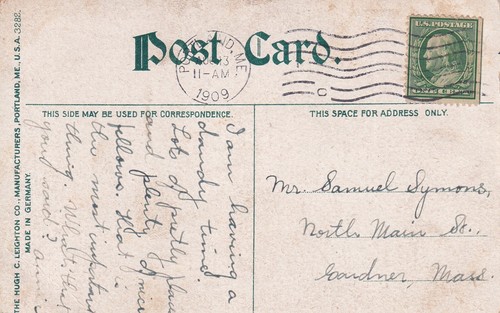 Post Card.
PORTLAND, ME.
11-AM
1909
C
U.S. POSTAGE
THIS SIDE MAY BE USED FOR CORRESPONDENCE.
THIS SPACE FOR ADDRESS ONLY.
THE HUGH C. LEIGHTON CO., MANUFACTURERS, PORTLAND, ME., U.S.A. 3282.
MADE IN GERMANY.
I am having a
dandy time.
Lot of pretty places
and plenty of nice
fellows. that is
the most
thing. What that
you said?
Mr. Samuel Symons,
North Main St.,
Gardner, Mass.